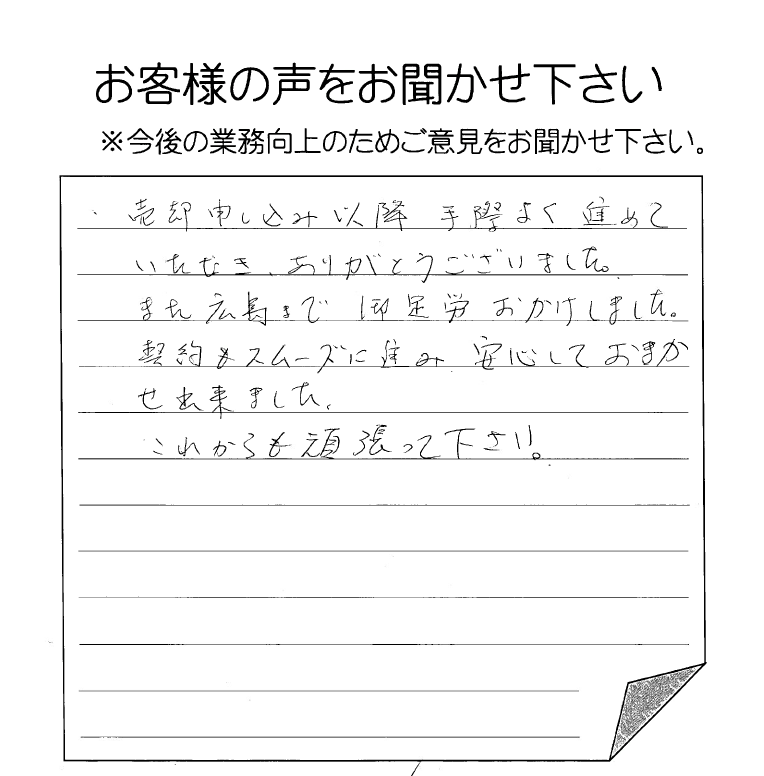 お客様の声をお聞かせ下さい
※今後の業務向上のためご意見をお聞かせ下さい。
・売却申し込み以降 手際よく 進めて
いただき、ありがとうございました。
また広島まで 御足労 おかけしました。
契約もスムーズに進み 安心しておまか
せ出来ました。
これからも頑張って下さい。